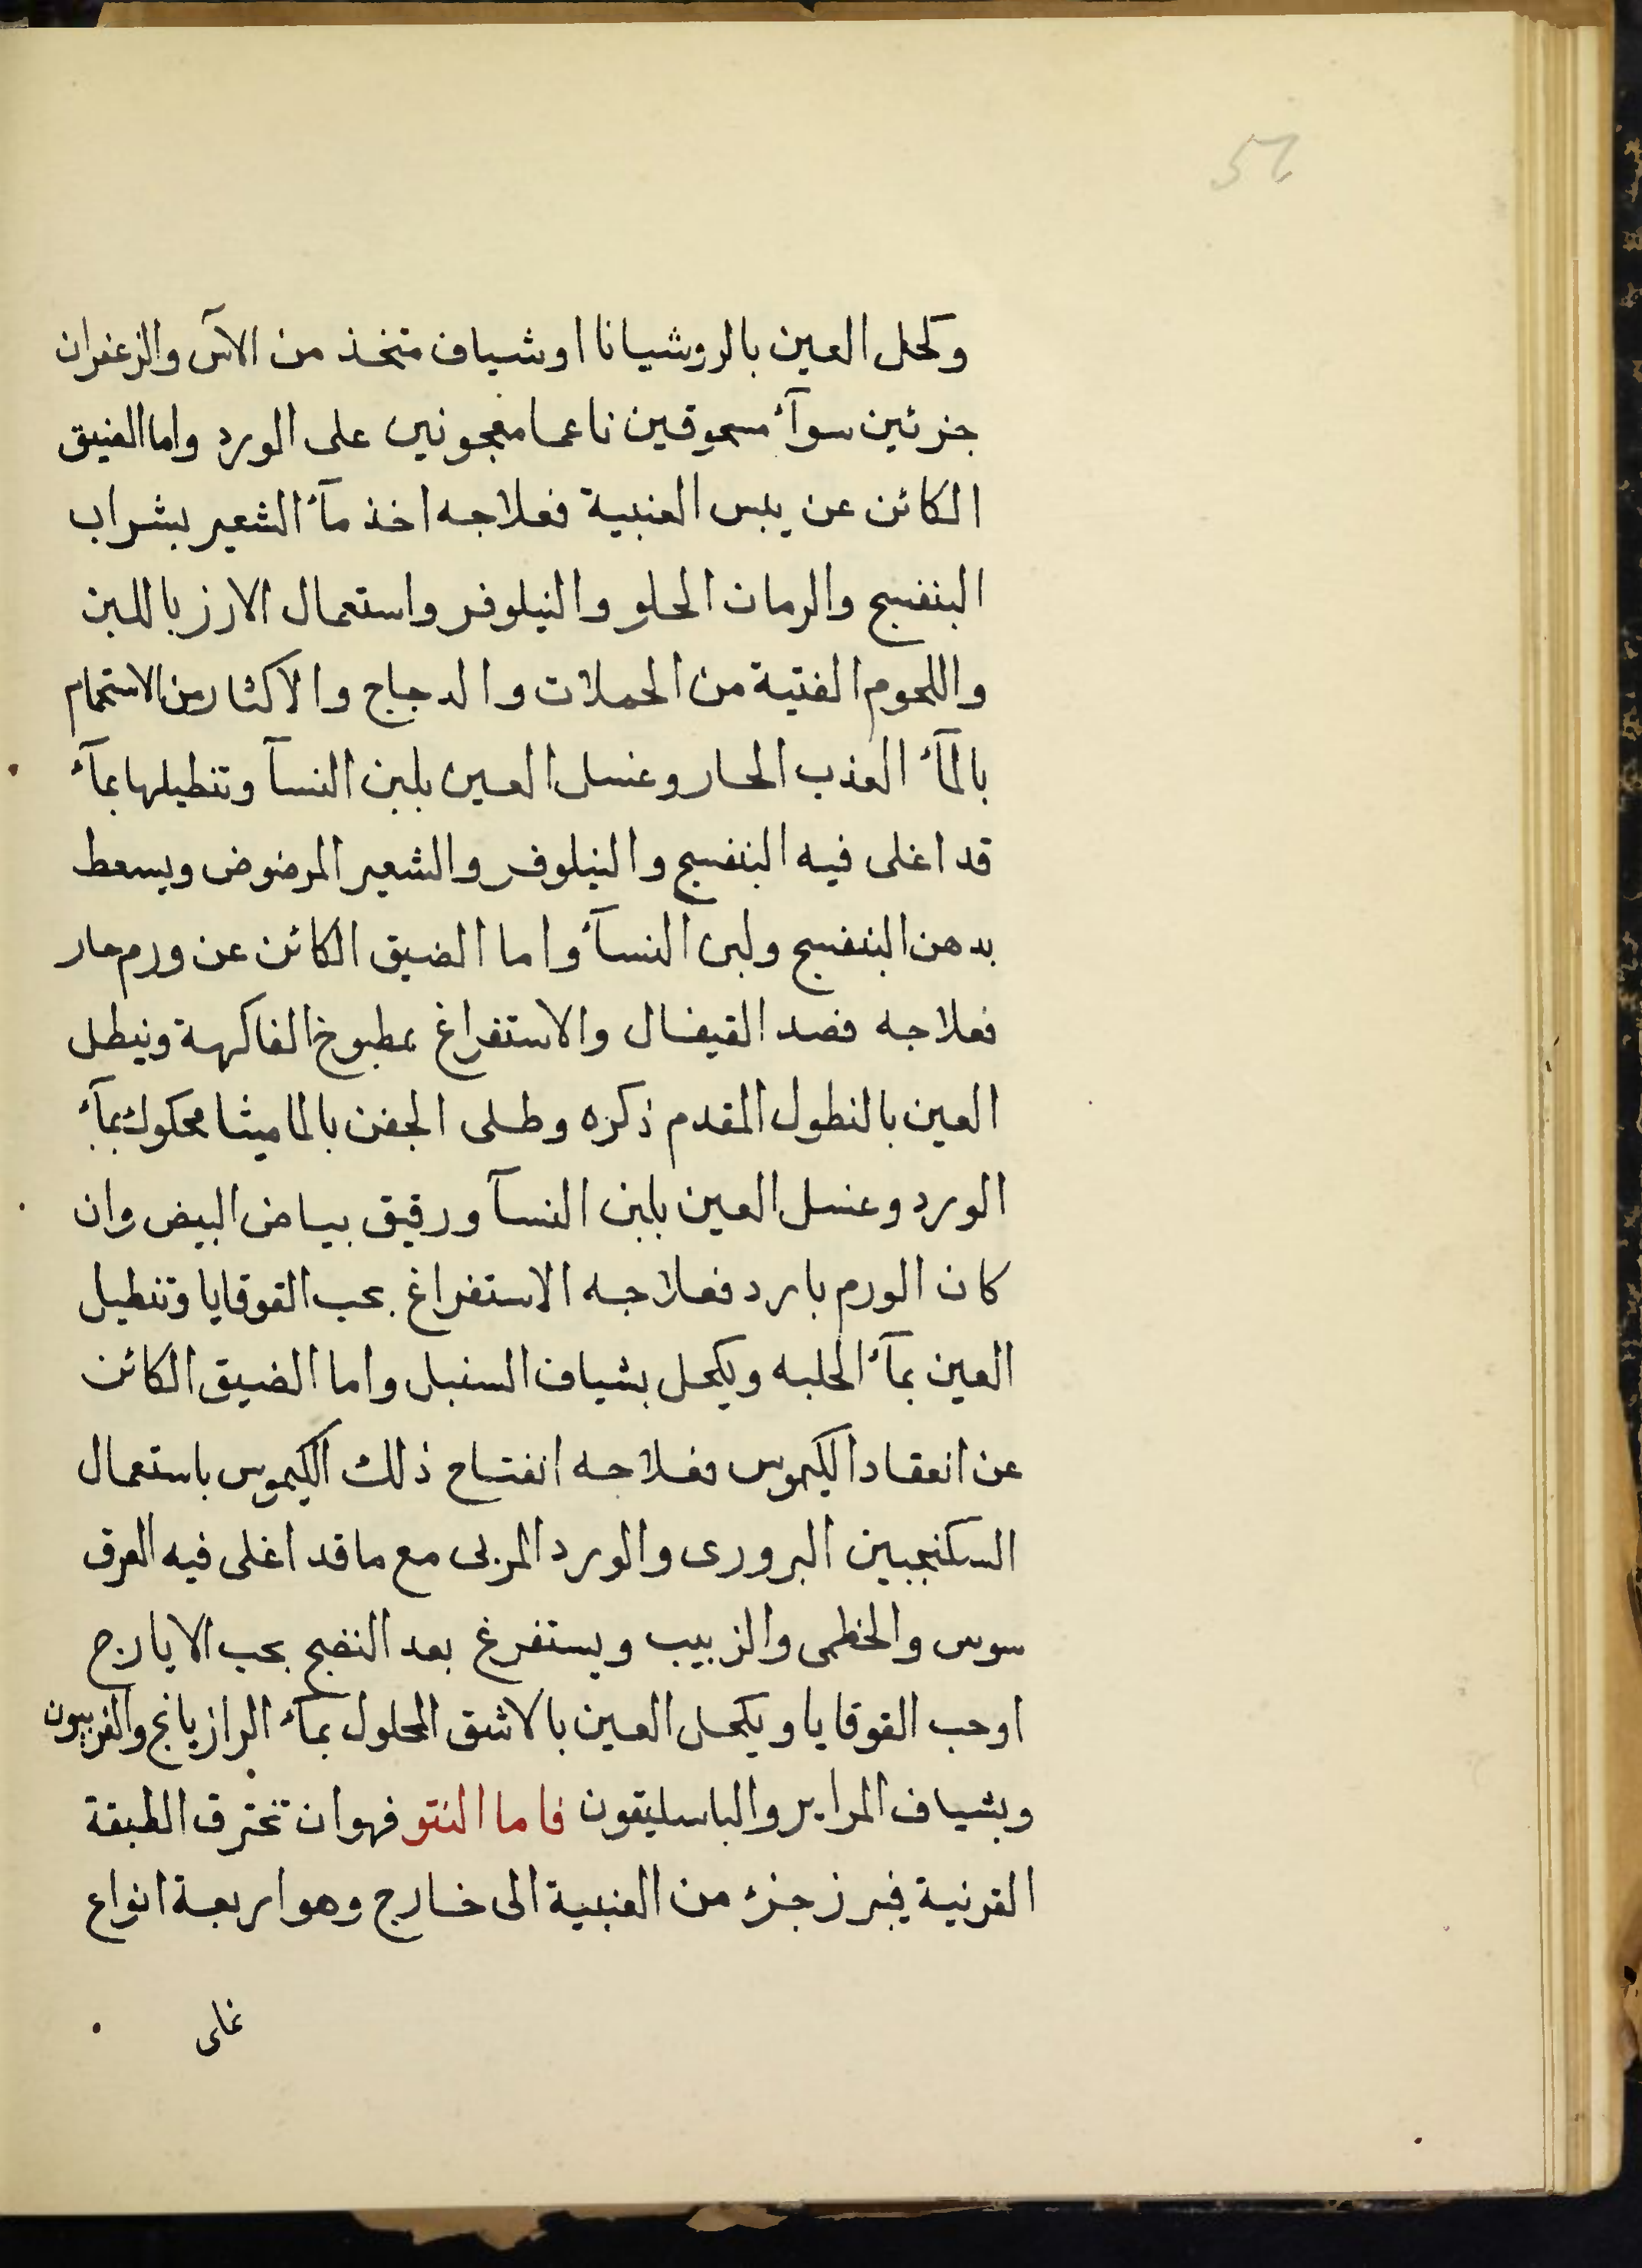 52
وكحل العين بالروشيانا او شياف متخذ من الآس والزعفران
جزئين سوآء مسحوقين ناعما معجونين على الورد واما الضيق
الكائن عن يبس العنبية فعلاجه اخذ مآء الشعير بشراب
البنفسج والرمان الحلو والنيلوفر واستعمال الارز باللبن
واللحوم الفتية من الحملات والدجاج والاكثار من الاستحمام
بالمآء العذب الحار وغسل العين بلبن النسآ وتنطيلها بمآء
قد اغلى فيه البنفسج والنيلوفر والشعير المرضوض ويسعط
بدهن البنفسج ولبن النسآء واما الضيق الكائن عن ورم حار
فعلاجه فصد القيفال والاستفراغ بمطبوخ الفاكهة وينطل
العين بالنطول المقدم ذكره وطلى الجفن بالماميثا محكوك بمآء
الورد وغسل العين بلبن النسآ ورقيق بياض البيض وان
كان الورم بارد فعلاجه الاستفراغ بحب القوقايا وتنطيل
العين بمآء الحلبه ويكحل بشياف السنبل واما الضيق الكائن
عن انعقاد الكيموس فعلاجه انفتاح ذلك الكيموس باستعمال
السكنجبين البرورى والورد المربى مع ما قد اغلى فيه العرق
سوس والخظمى والزبيب ويستفرغ بعد النضج بحب الايارج
اوحب القوقايا ويكحل العين بالاشق المحلول بمآء الرازيانج والفربيون
وبشياف المراير والباسليقون فاما النتو فهو ان تخترق الطبقة
القرنية فيبرز جزء من العنبية الى خارج وهو اربعة انواع